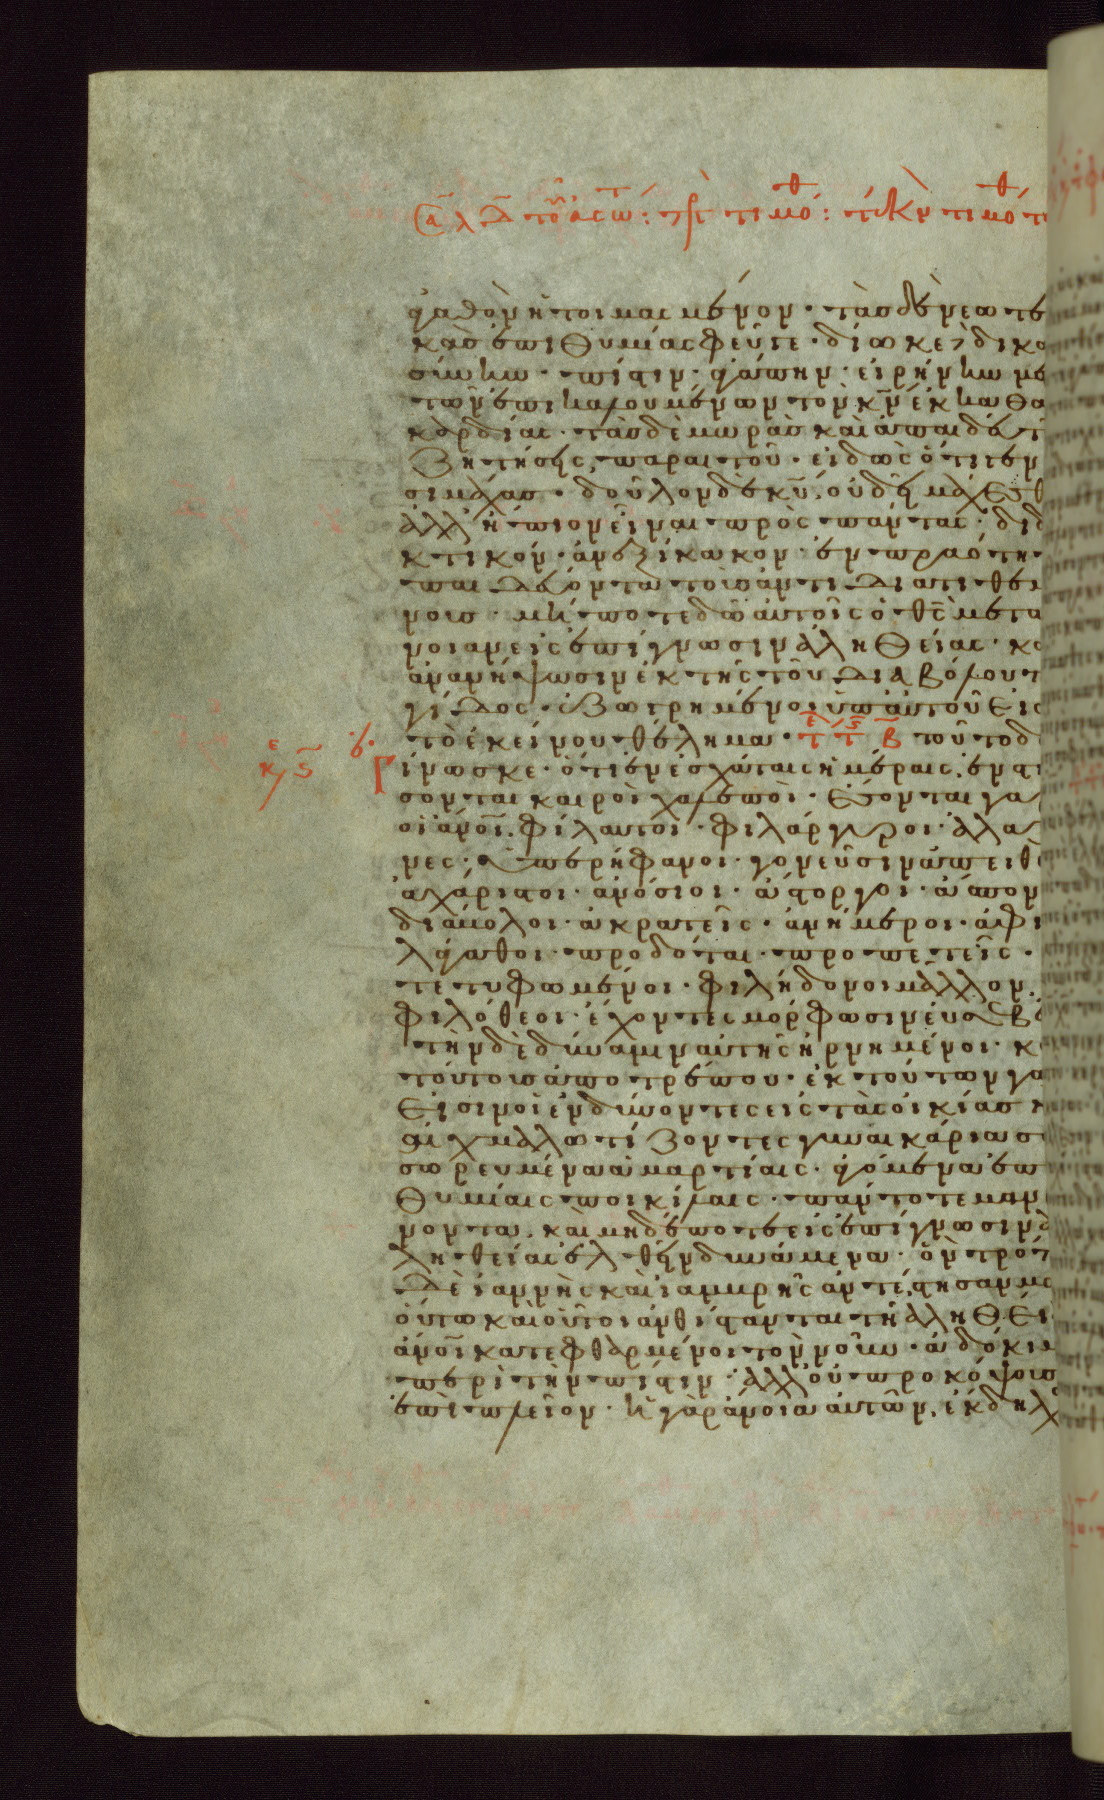 γαθὸν ἡτοιμασμένον · τὰσ δὲ νεωτε
κὰσ ἐπιθυμίασ φεῦγε · δίωκε δικα
σύνην · πίστιν · ἀγάπην · εἰρήνην με
τῶν ἐπικαλουμένων τὸν κν ἐκ καθα
καρδίας · τὰσ δὲ μωρὰσ καὶ ἀπαιδε
ζητήσεις παραιτοῦ · εἰδὼς ὅτι γεν
σι μάχασ · δοῦλον δὲ κυ οὐ δεῖ μάχεσθ
ἀλλ' ἤπιον εἶναι πρὸς πάντας · διδ
κτικόν · ἀνεξίκακον · ἐν πραότη
παιδεύοντα τοὺσ ἀντιδιατιθεμ
νουσ · μήποτε δῶ αὐτοῖς ὁ θς μετά
νοιαν εἰς ἐπίγνωσιν ἀληθείας · κα
ἀνανήψωσιν ἐκ τῆς τοῦ διαβόλου π
γίδος · ἐζωγρημένοι ὑπ' αὐτοῦ εἰς
τὸ ἐκείνου θέλημα · τοῦτο δ
Γίνωσκε · ὅτι ἐν ἐσχάταις ἡμέραις ἐνστ
σονται καιροὶ χαλεποί · ἔσονται γὰρ
οἱ ανοι φίλαυτοι · φιλάργυροι · ἀλα
νες · ὑπερήφανοι · γονεῦσιν ἀπειθ
ἀχάριστοι · ἀνόσιοι · ἄστοργοι · ἄσπον
διάβολοι · ἀκρατεῖς · ἀνήμεροι · ἀφι
λάγαθοι · προδόται · προπετεῖς ·
τετυφωμένοι · φιλήδονοι μᾶλλον
φιλόθεοι · ἔχοντες μόρφωσιν εὐσεβ
τὴν δὲ δύναμιν αὐτῆς ἠρνημένοι · κ
τούτουσ ἀποτρέπου · ἐκ τούτων γα
εἰσιν οἱ ἐνδύνοντες εἰς τὰς οἰκίασ κ
αἰχμαλωτίζοντες γυναικάρια σε
σωρευμένα ἁμαρτίαις · ἀγόμενα ἐπ
θυμίαις ποικίλαις · πάντοτε μαν
νοντα, καὶ μηδέποτε εἰς ἐπίγνωσιν ἀ
ληθείας ἐλθεῖν δυνάμενα · ὃν τρόπ
δὲ ἰαννὴς καὶ ἰαμβρῆς ἀντέστησαν μω
οὕτω καὶ οὗτοι ἀνθίστανται τῇ ἀληθεί
ανοι κατεφθαρμένοι τὸν νοῦν · ἀδόκιμ
περὶ τὴν πίστιν · ἀλλ' οὐ προκόψουσ
ἐπὶ πλεῖον · ἡ γὰρ ἄνοια αὐτῶν, ἔκδηλ